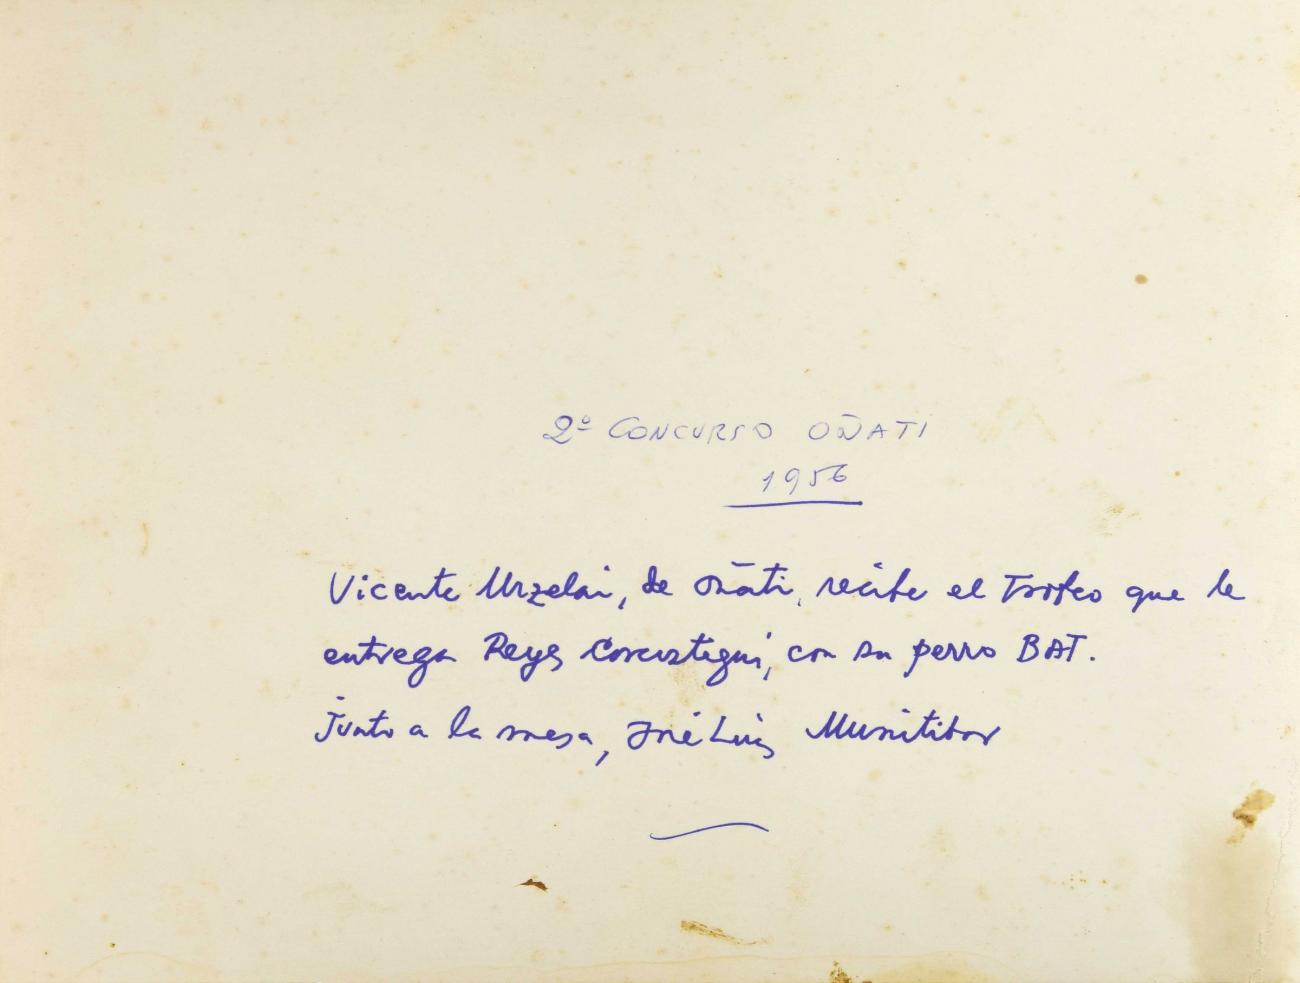 2º CONCURSO OÑATI
1956
Vicente Urzelai, de Oñati, recibe el Trofeo que le
entrega Reyes Corcostegui, con su perro BAT.
Junto a la mesa, José Luis Munitibar